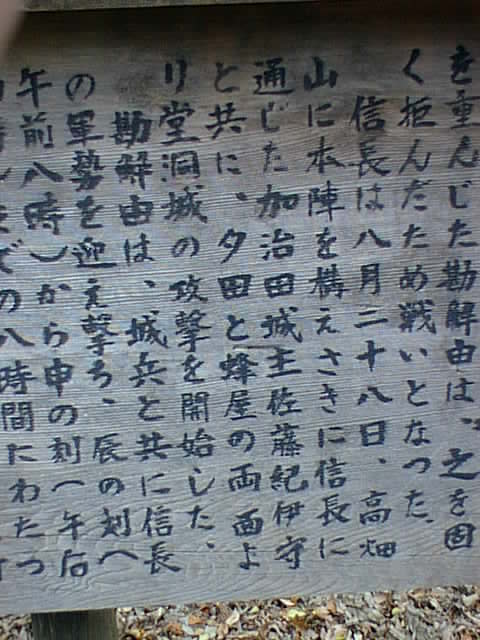 を重んじた勘解由は、之を固
く拒んだため戦いとなった。
信長は八月二十八日、高畑
山に本陣を構えさきに信長に
通じた加治田城主佐藤紀伊守
と共に、夕田と蜂屋の両面よ
り堂洞城の攻撃を開始した、
勘解由は、城兵と共に信長
の軍勢を迎え撃ち、辰の刻へ
午前八時)から申の刻(午后
までの八時間にわたっ